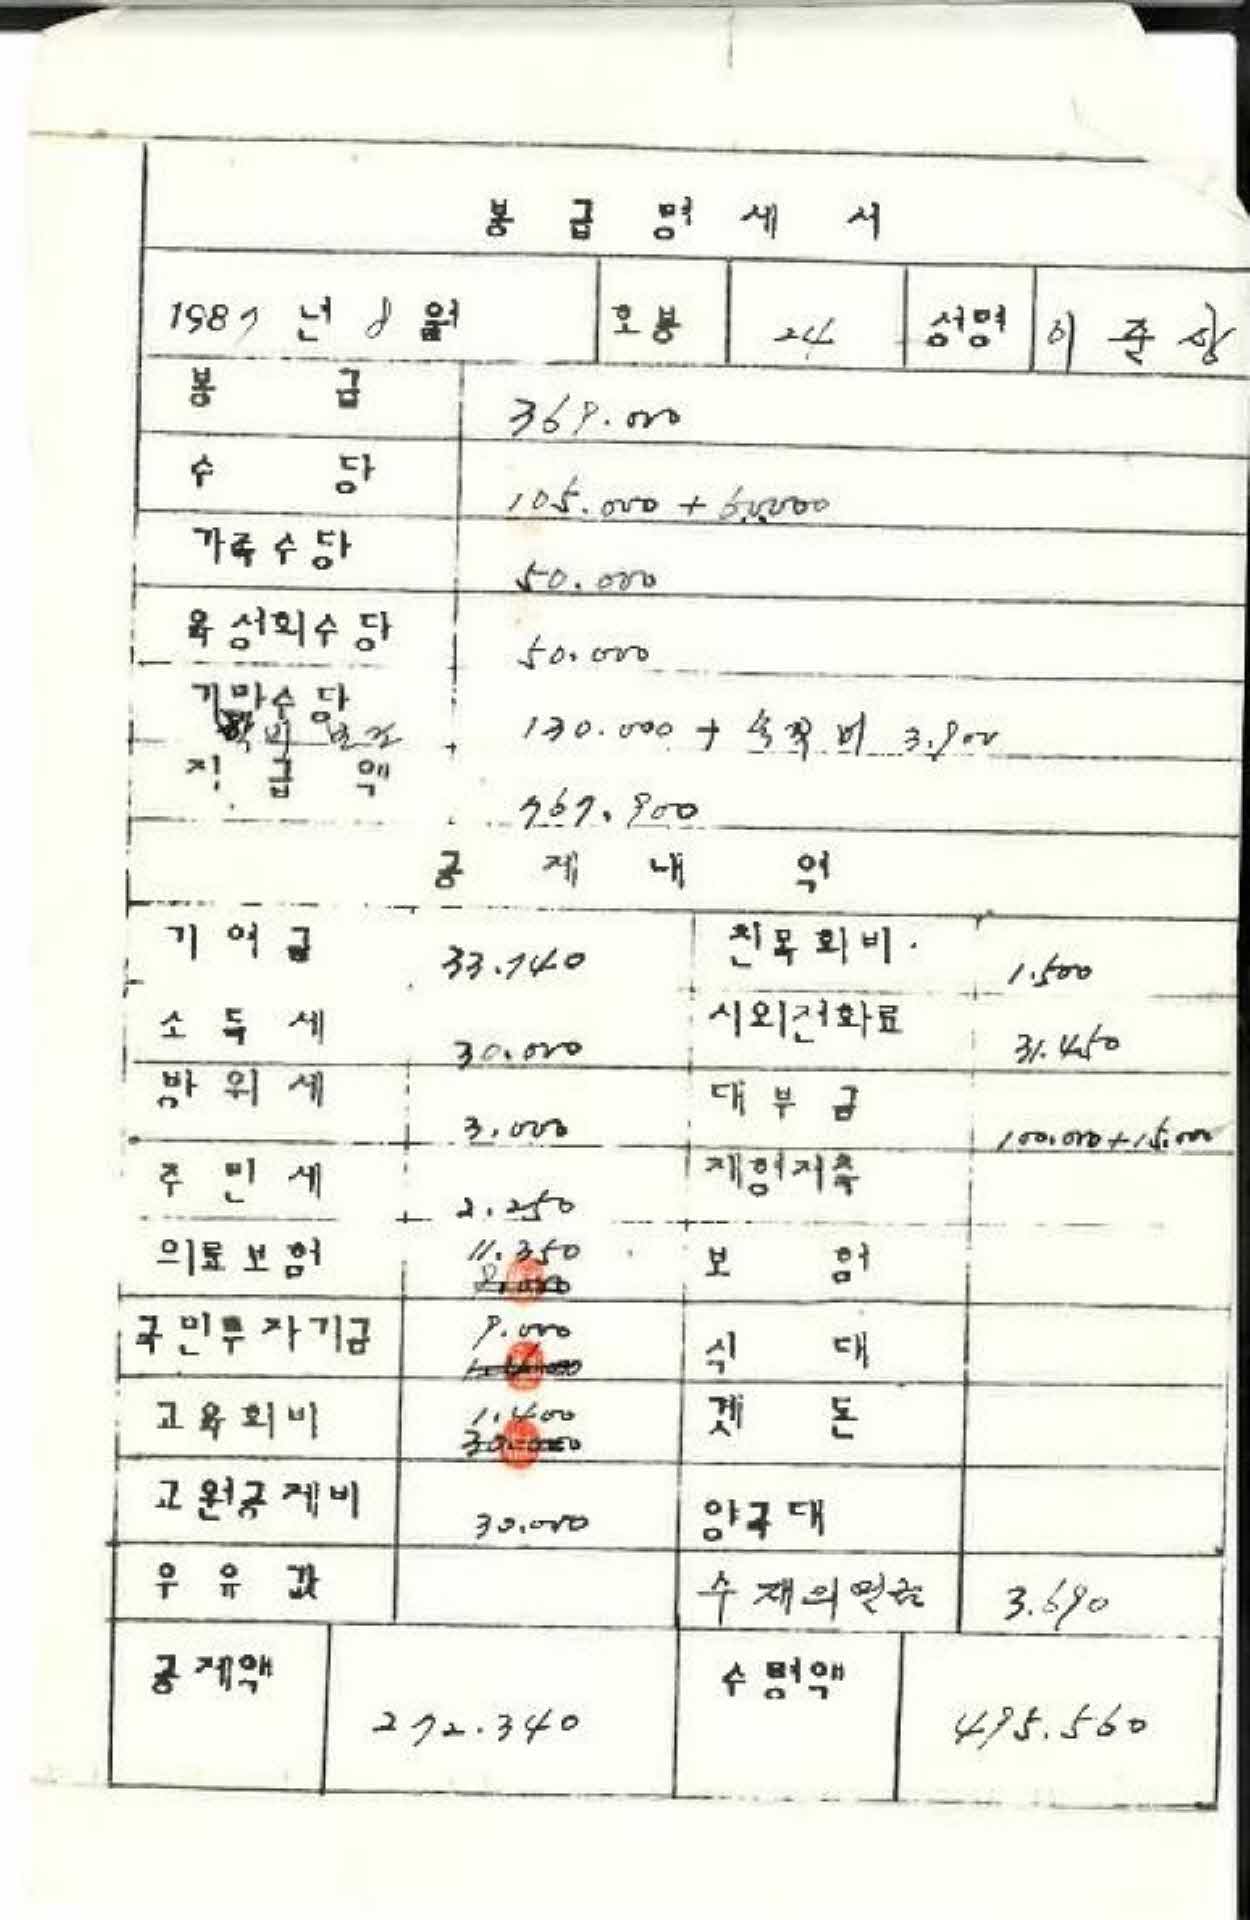 봉 급 명 세 서
1987 년 8 월 호봉 24 성명 이 준 상
봉 급 369.000
수 당 105.000 + 60.000
가족수당 50.000
육성회수당 50.000
기말수당 130.000 + 숙직비 3.900
학비 보조
지 급 액 767.900
공 제 내 역
기 여 금 33.740 친목회비. 1.500
소 득 세 30.000 시외전화료 31.450
방 위 세 3.000 대 부 금 100.000+15.000
주 민 세 2.250 재형저축
의료보험 11.350 보 험
8.000
국민투자기금 9.000 식 대
교육회비 1.400 곗 돈
30.000
교원공제비 30.000 양국대
우 유 값 수재의연금 3.690
공제액 272.340 수령액 495.560